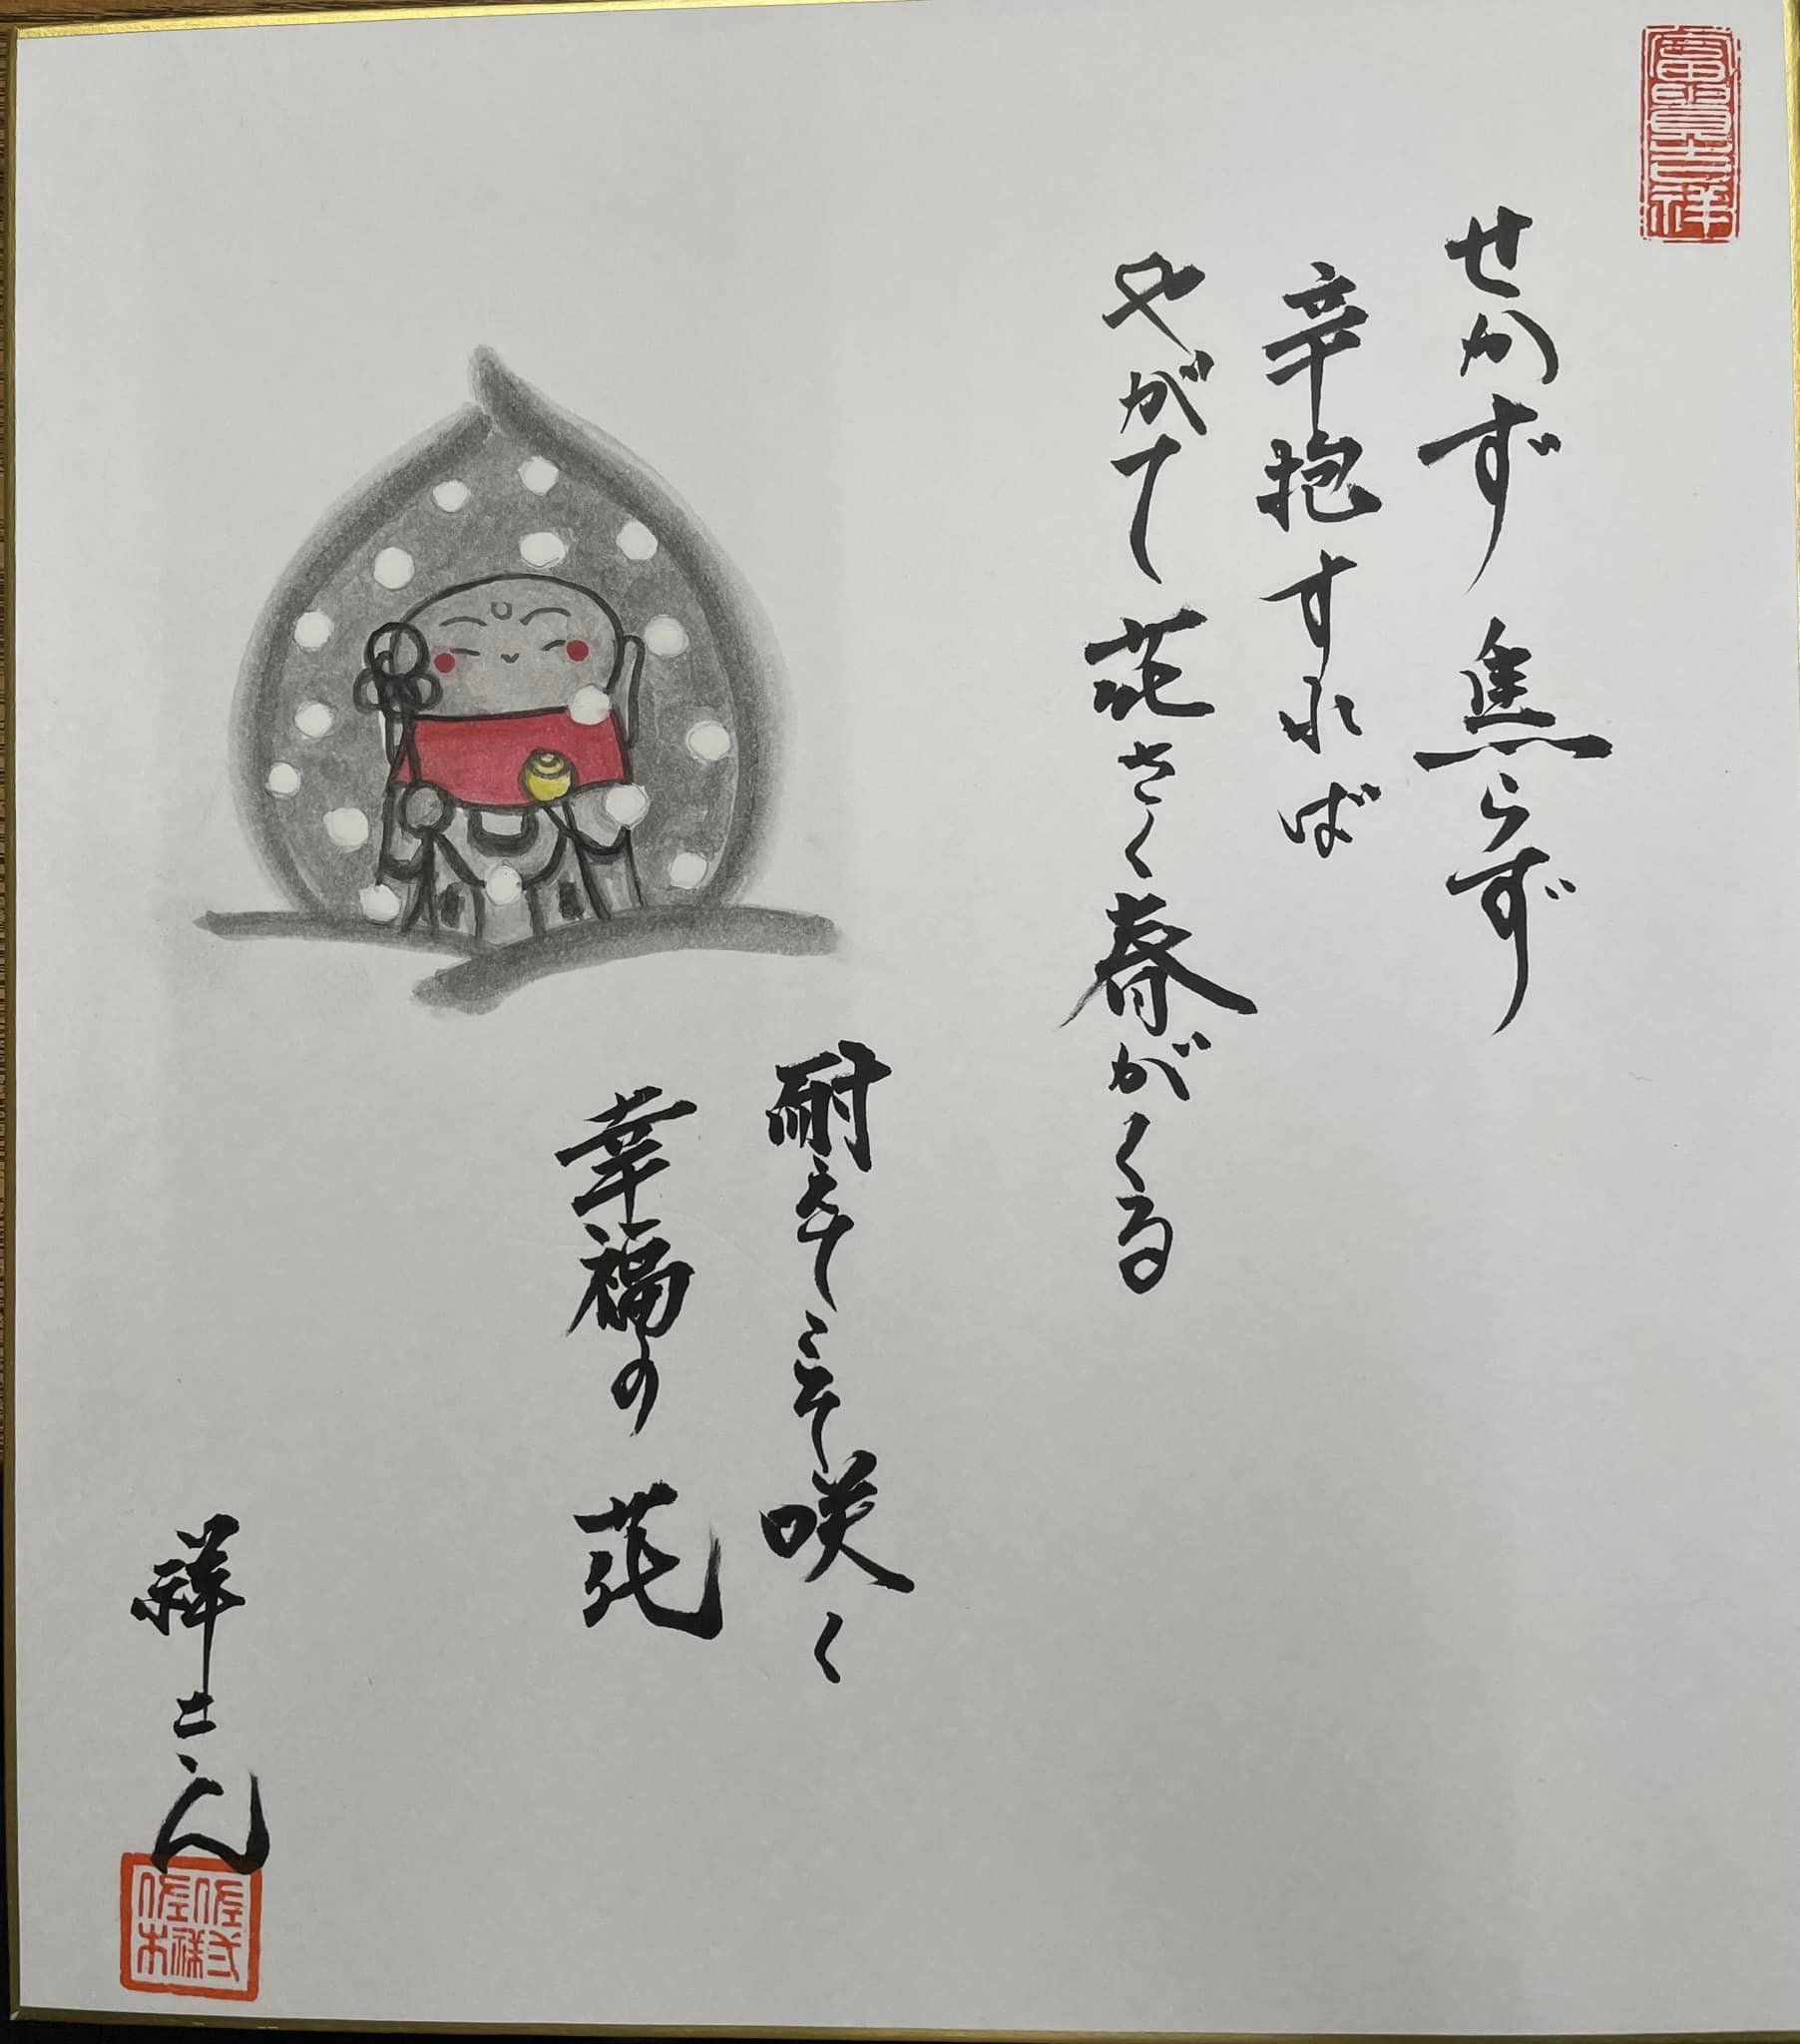 富貴吉祥
せかず 焦らず
辛抱すれば
やがて花さく春がくる
耐えてこそ咲く
幸福の 花